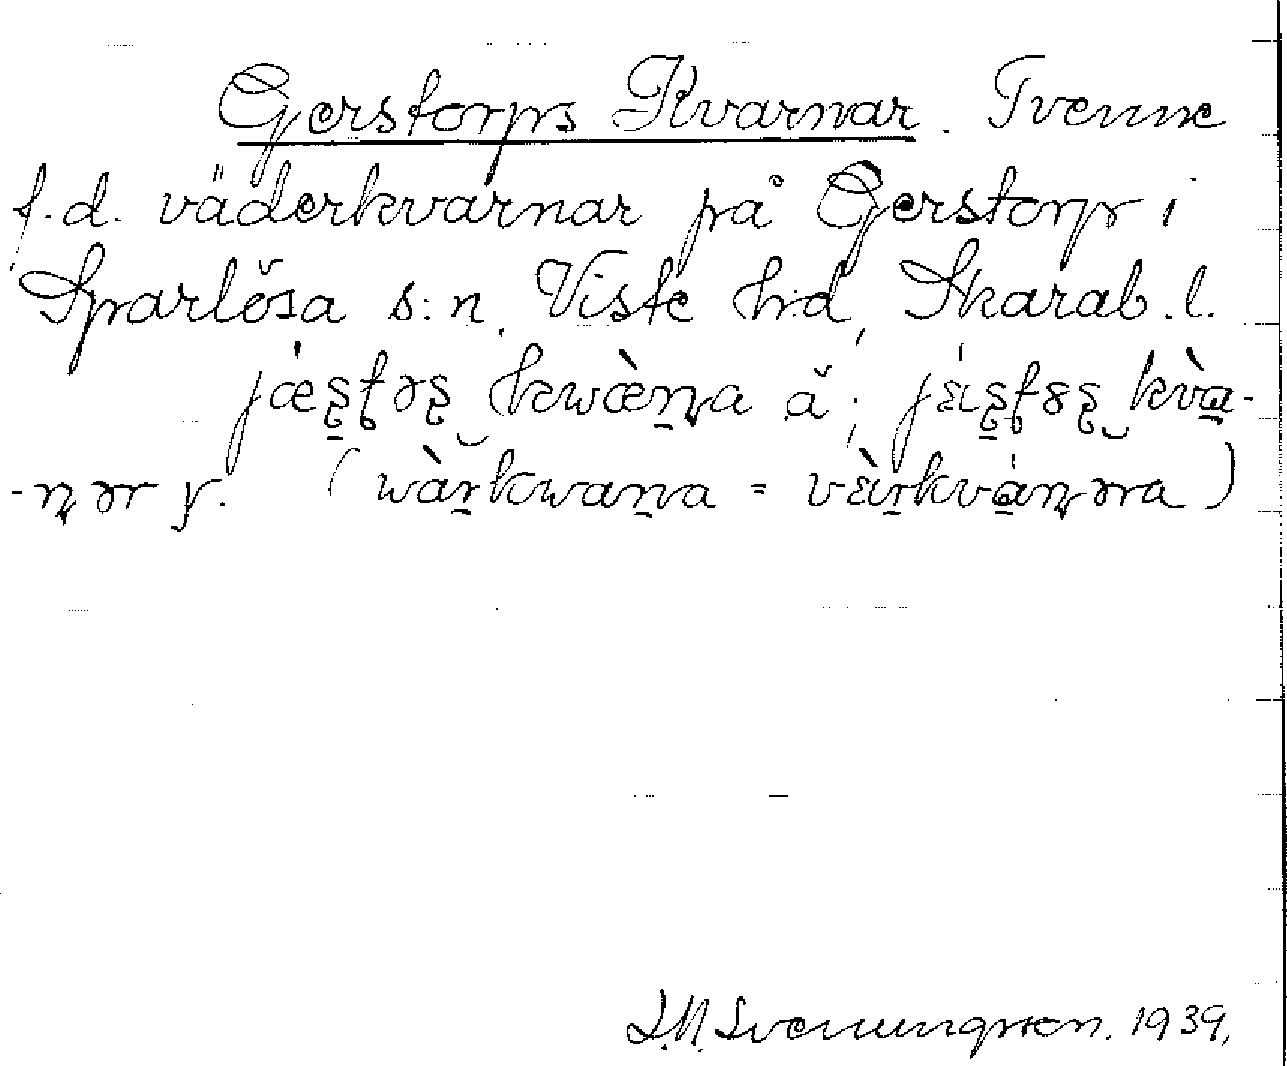 Gerstorps Kvarnar. Tvenne
f.d. väderkvarnar på Gerstorp i
Sparlösa s:n, Viste h:d, Skarab. l.
jǽʂʈɘʂ kwæ̀ɳa ǎ; jɛ́ıʂʈɘʂ kvà-
-ɳɘr y. (wàrkwaɳa = vɛ̀ırkváɳɘra)
Svenungsson. 1939,